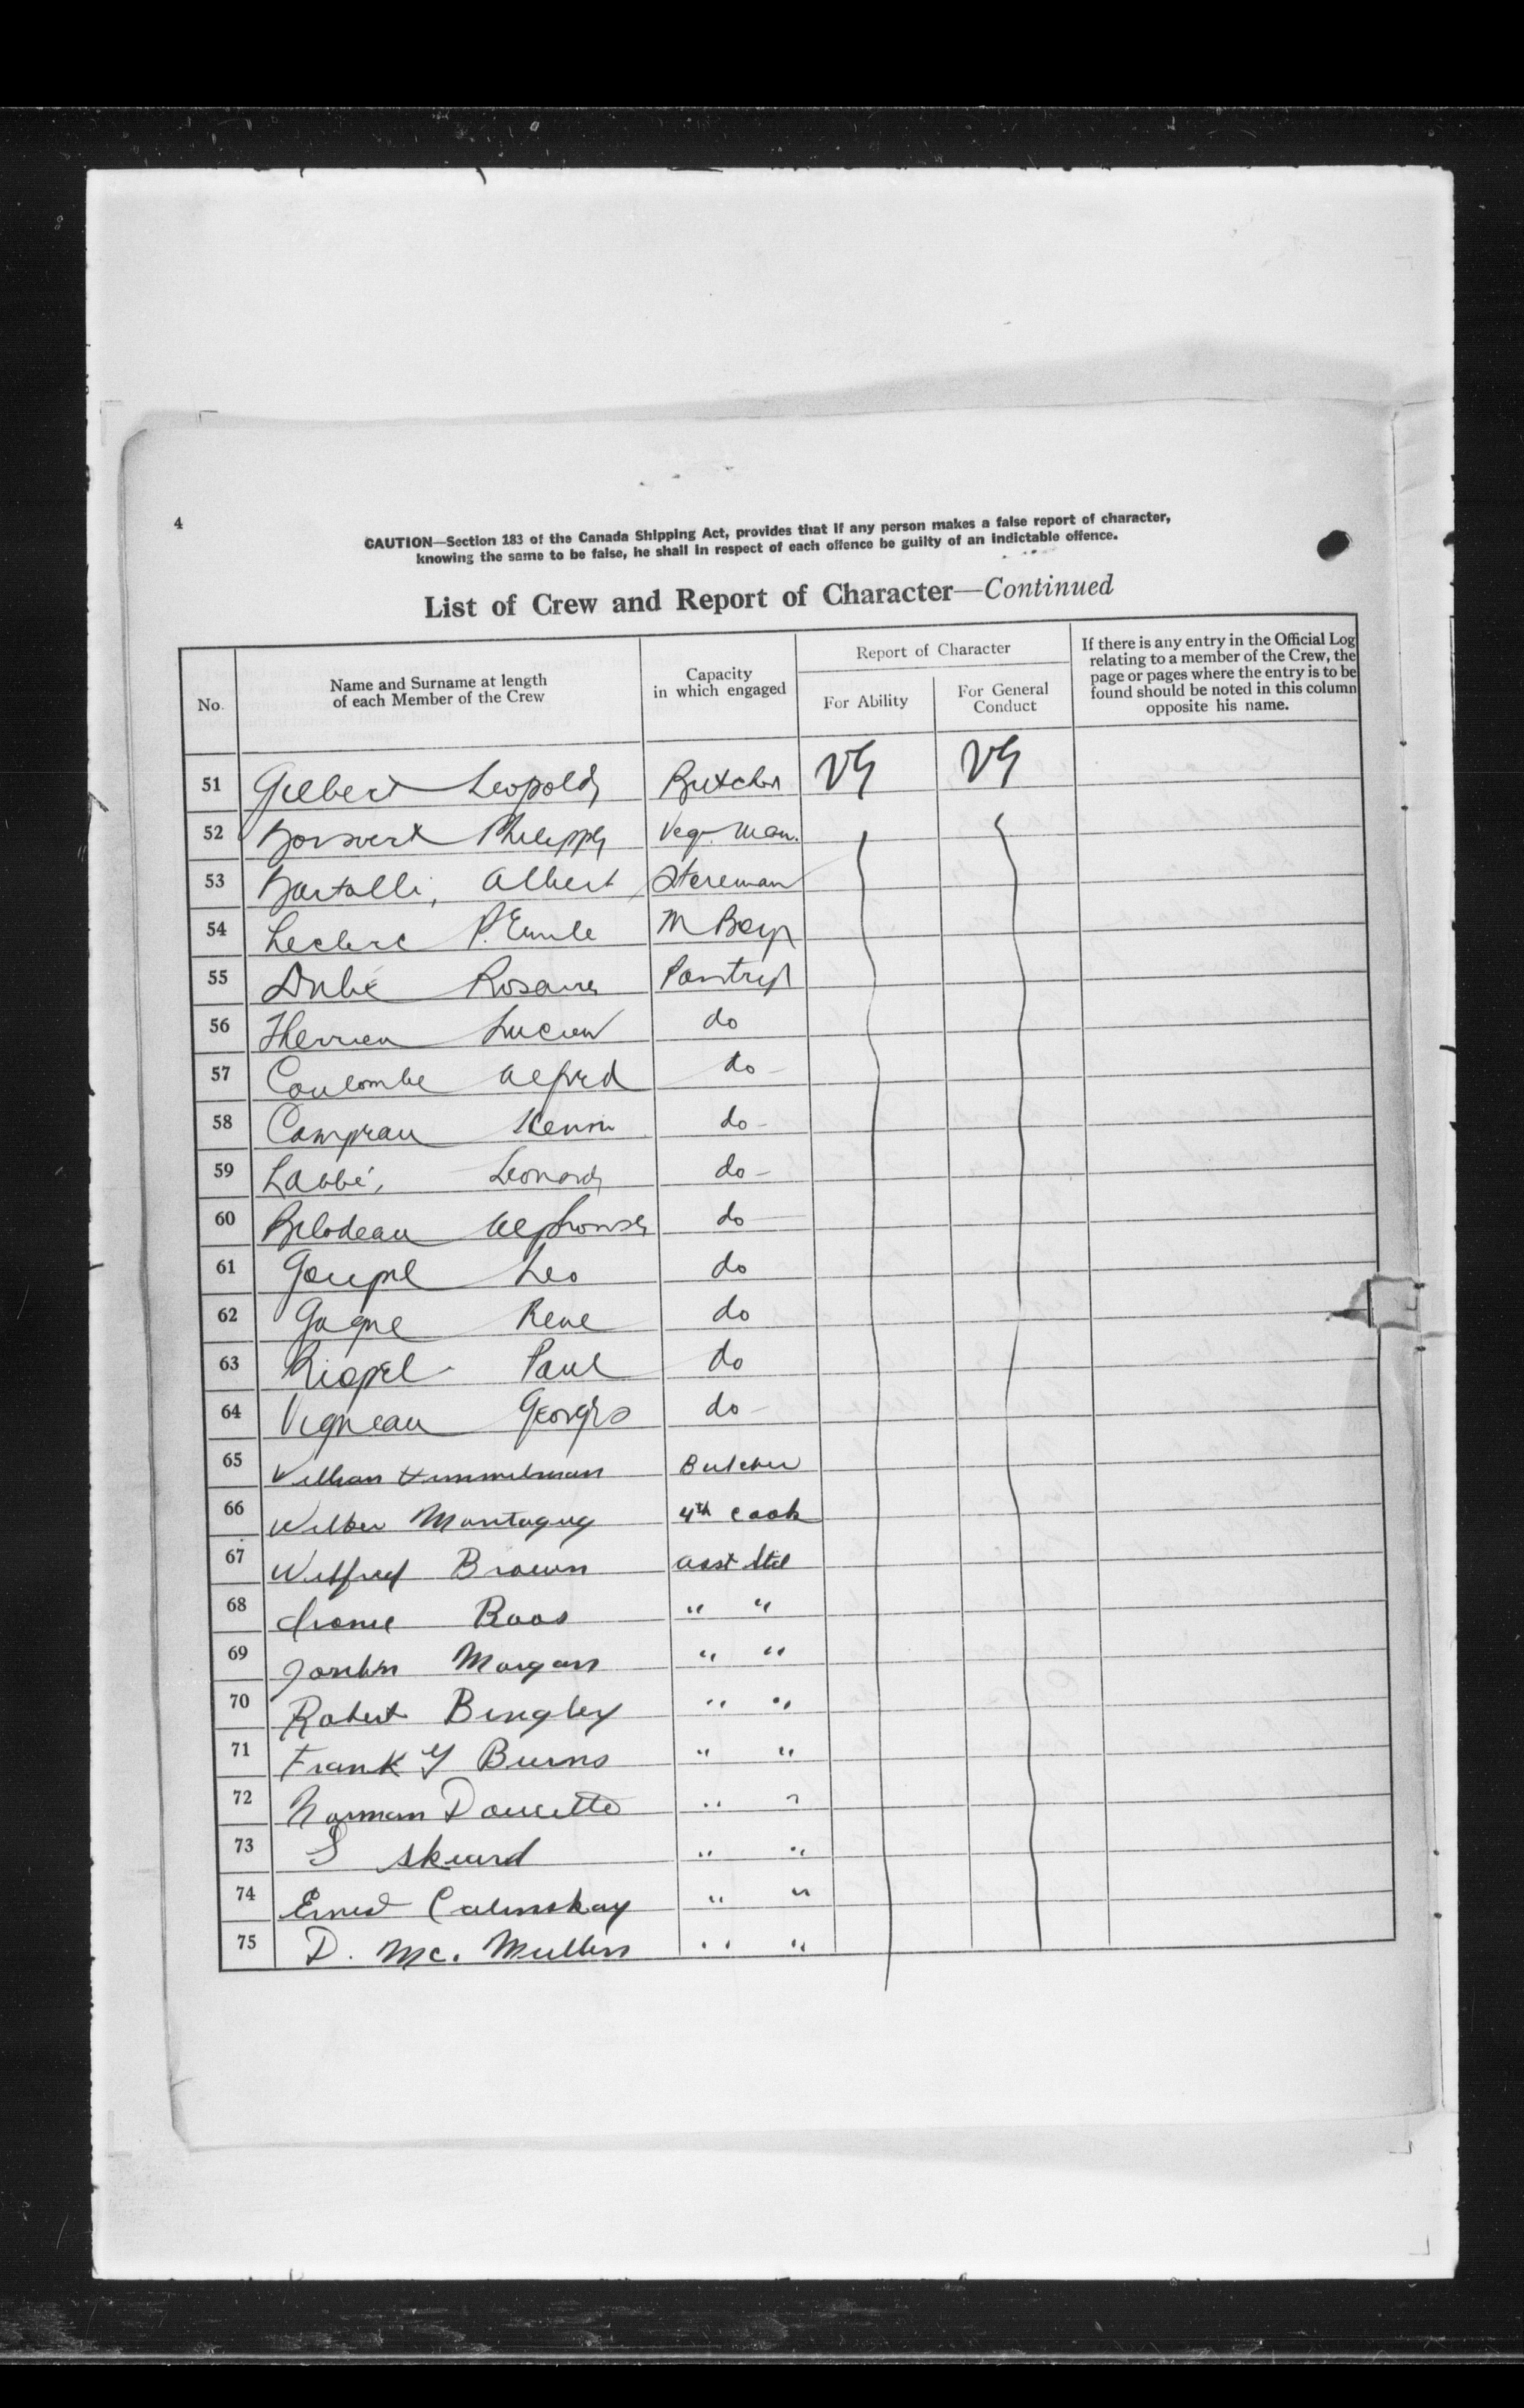 4
CAUTION—Section 183 of the Canada Shipping Act, provides that if any person makes a false report of character,
knowing the same to be false, he shall in respect of each offence be guilty of an indictable offence.
List of Crew and Report of Character—Continued
No.
Name and Surname at length
of each Member of the Crew
Capacity
in which engaged
Report of Character
For Ability
For General
Conduct
If there is any entry in the Official Log
relating to a member of the Crew, the
page or pages where the entry is to be
found should be noted in this column
opposite his name.
51 Gilbert Leopold Butcher VG VG
52 Boisvert Philippe Veg. Man.
53 Bartalli, Albert Storeman
54 Leclerc P. Emile M Boy
55 Dubé Pantry
56 Therrien Lucien do
57 Coulombe Alfred do -
58 Campeau Henri do -
59 Labbé, Leonard do -
60 Belodeau Alphonse do
61 Goupil Leo do
62 Gagne Rene do
63 Riopel - Paul do
64 Vigneau Georges do -
65 Himmelman Butcher
66 Montague 4th Cook
67 Wilfred Brown Asst Std
68 Roos " "
69 Morgan " "
70 Robert Bingley " "
71 Frank Y Burns " "
72 Norman Doucette " "
73 S " "
74 Ernest " "
75 D. Mc. Mullen " "